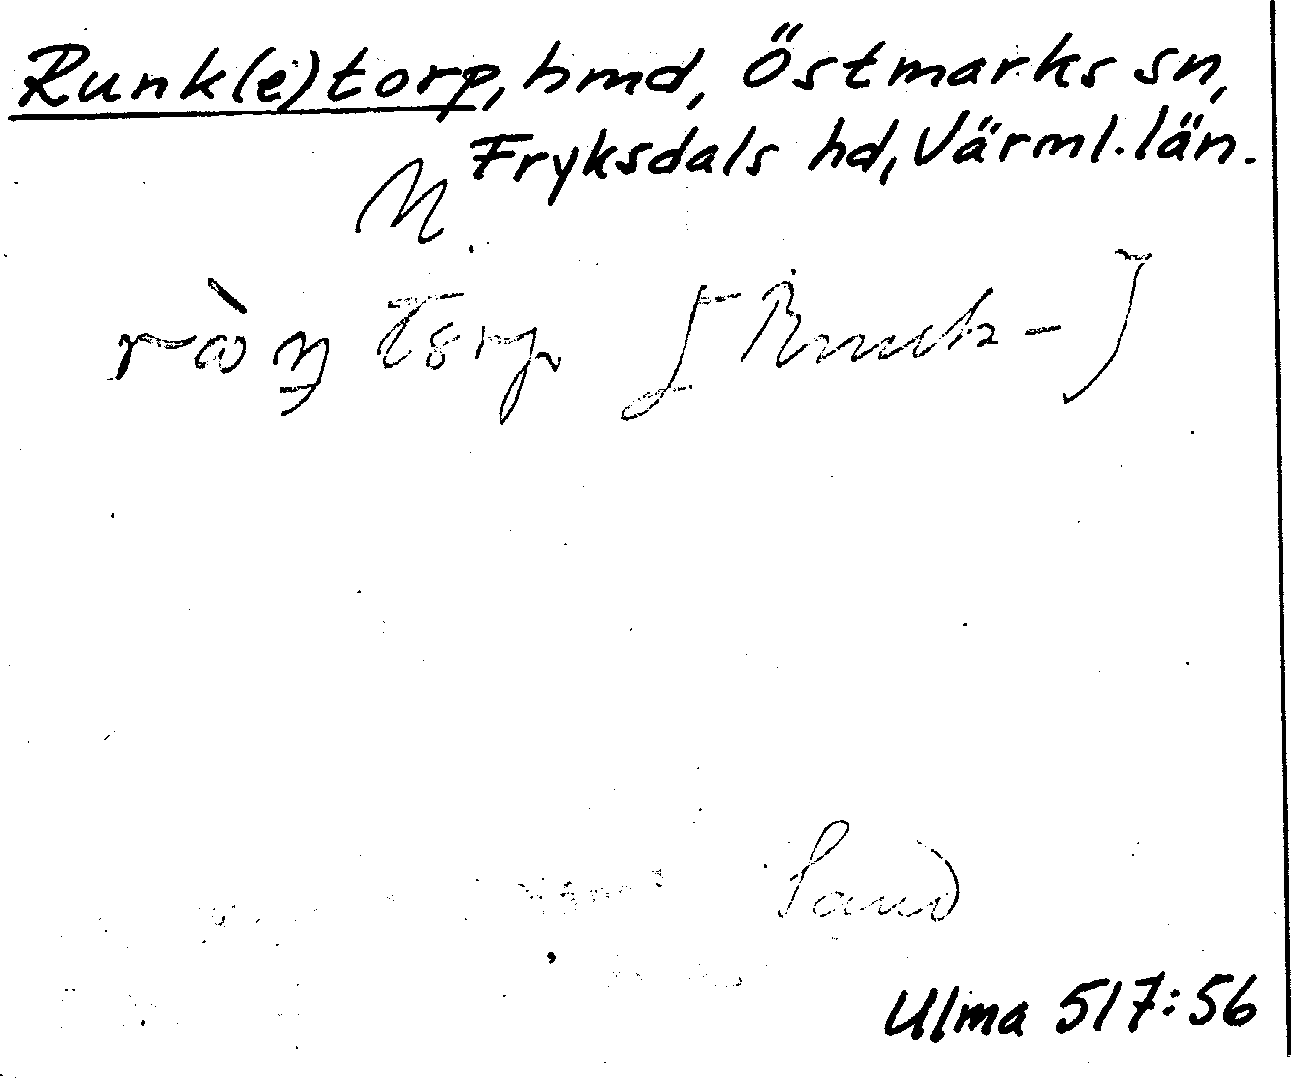 Runk(e)torp, hmd, Östmarks sn,
Fryksdals hd, Värml. län.
N.
[Runek-]
Sand
Ulma 517:56